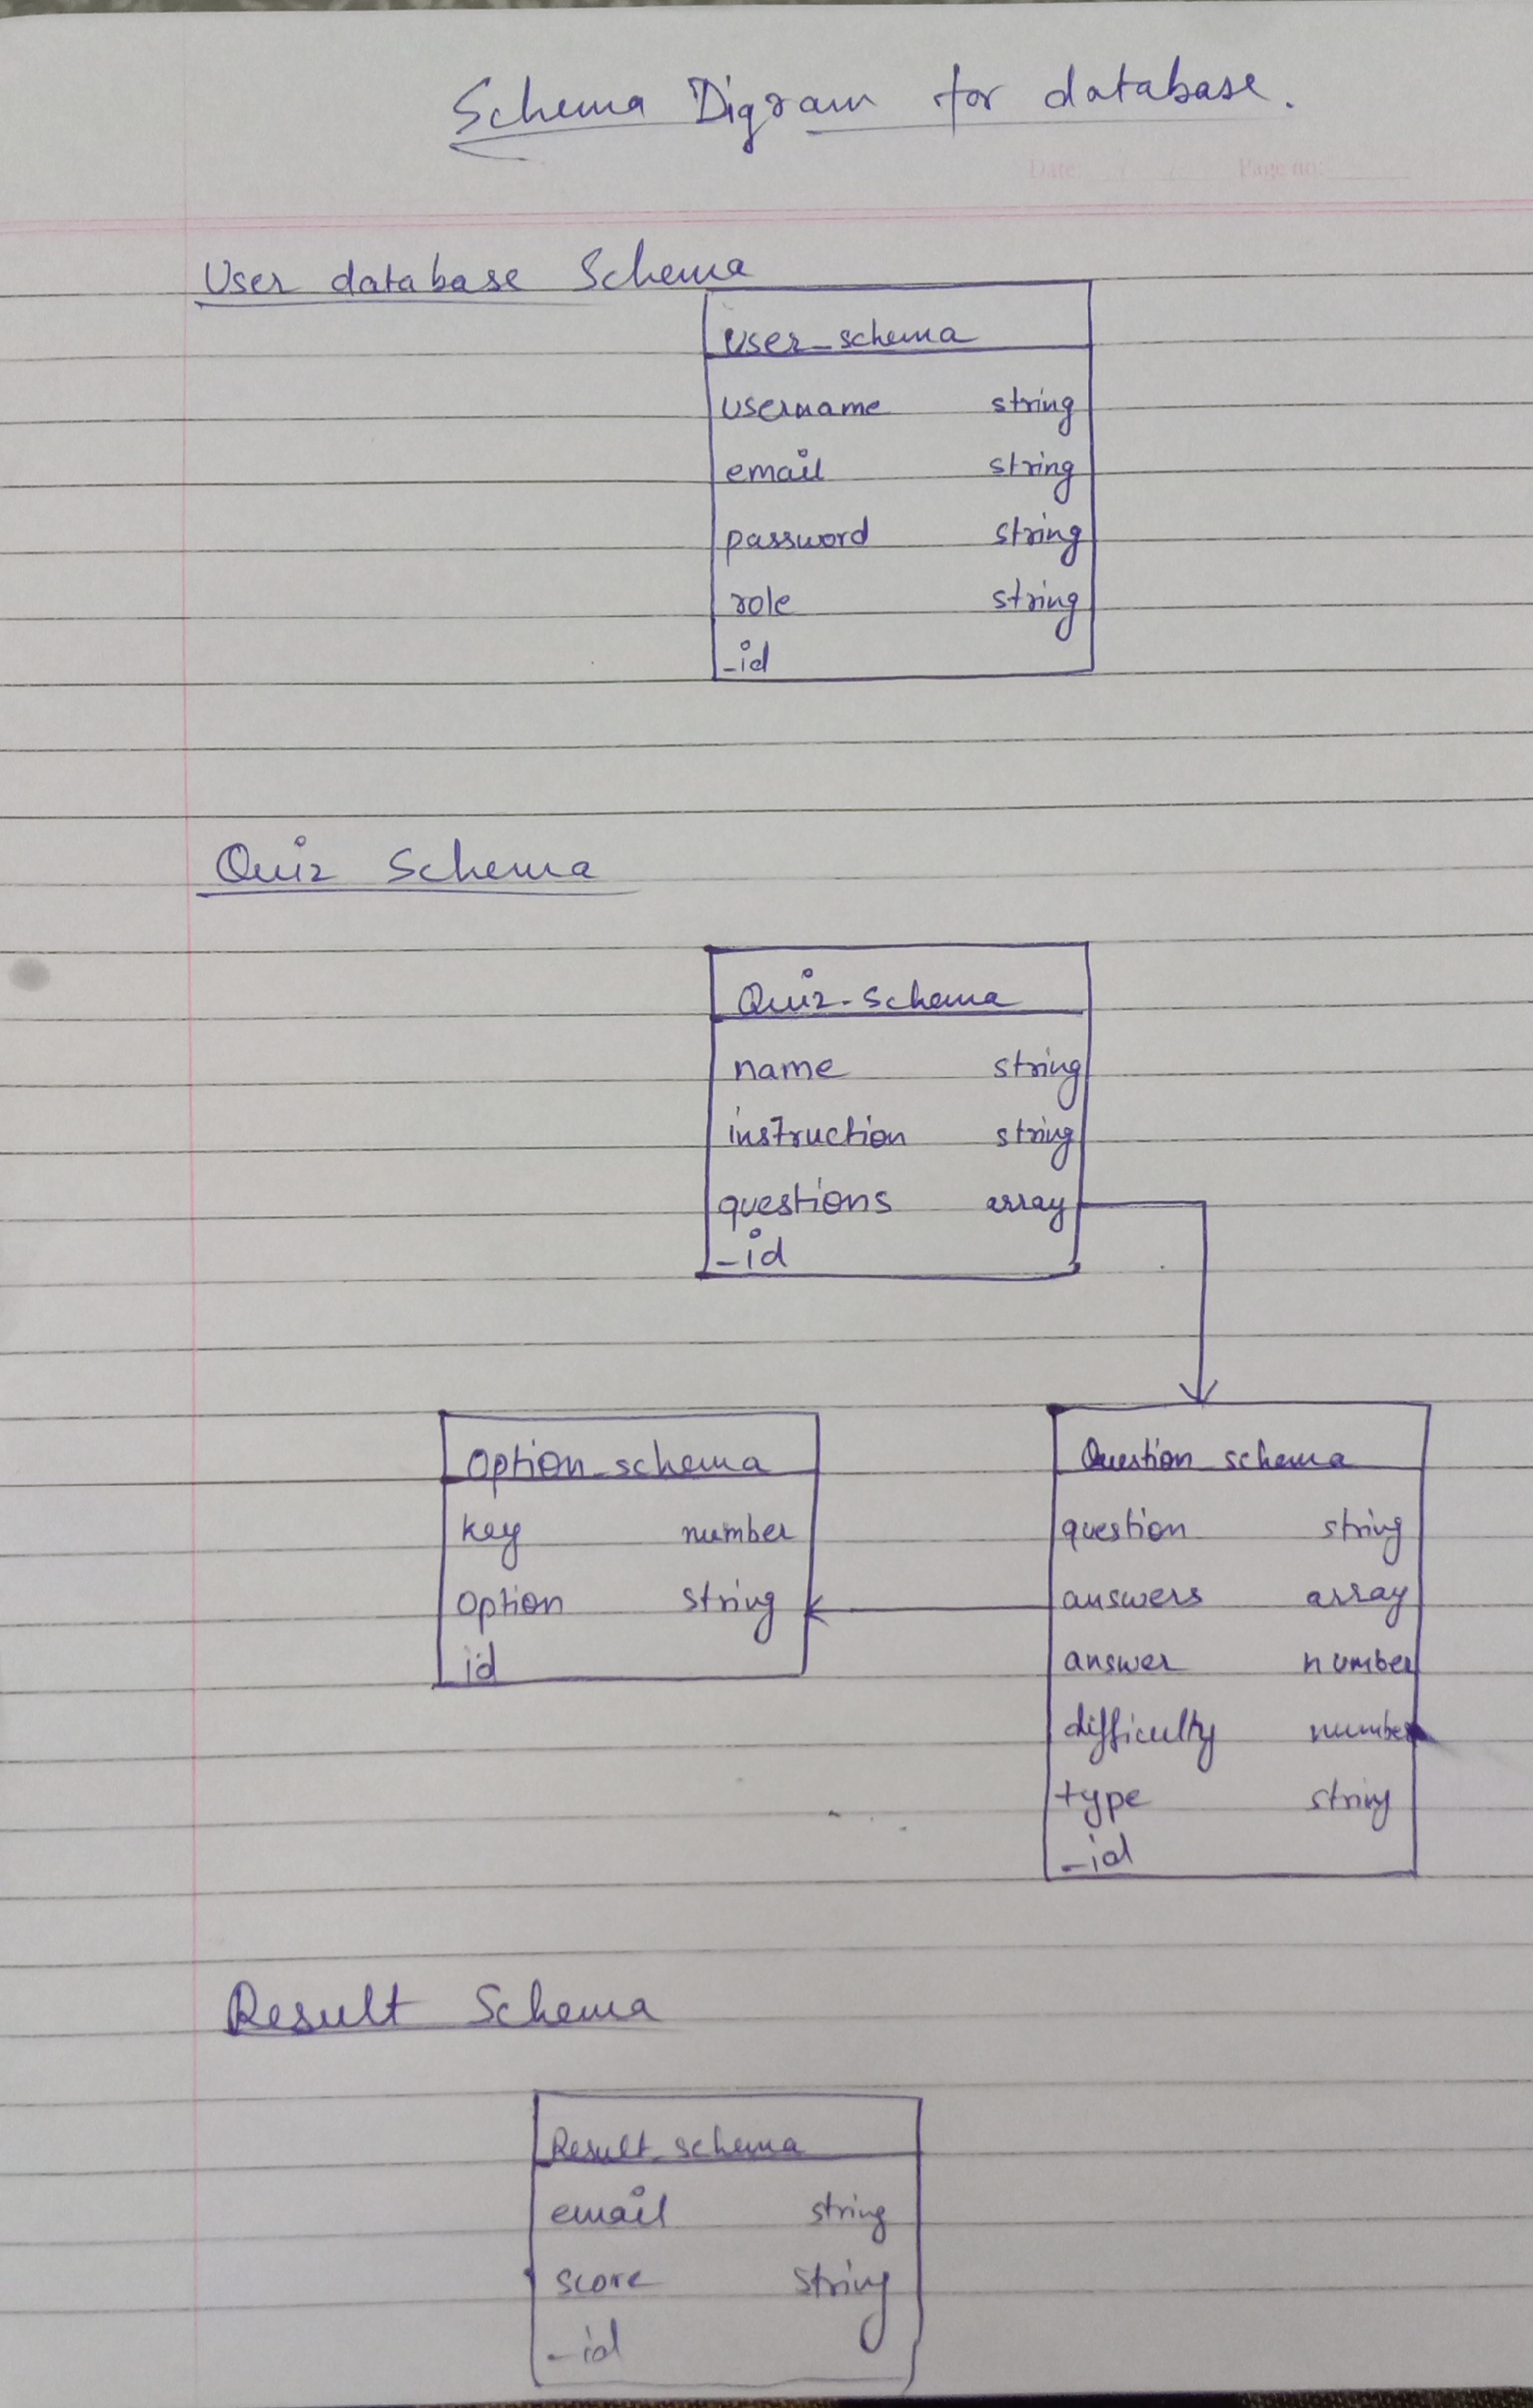 Schema Digram for database.
Date: / / Page no:
User database Schema
User_schema
username string
email string
password string
role string
_id
Quiz Schema
Quiz-Schema
name string
instruction string
questions array
_id
Option_schema
key number
option string
id
Question_schema
question string
answers array
answer number
difficulty number
type string
_id
Result Schema
Result_schema
email string
score string
_id